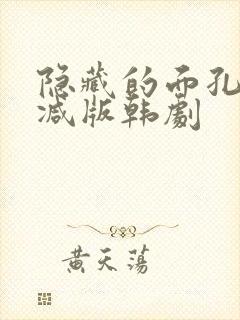 隐藏的而孔
减版韩劇
黄天荡